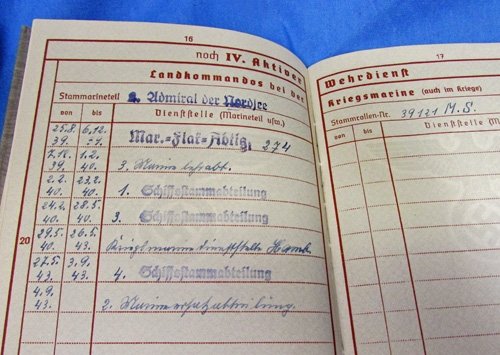 16
noch IV. Aktiver
Landkommandos bei der
Stammarineteil
2. Admiral der Nordsee
von bis Dienststelle (Marineteil usw.)
25.8. 6.12.
39. Mar.-Flak-Abtlg. 274
1.2.
39. 40. 3.
2.2. 23.2.
40. 40. 1. Schiffsstammabteilung
24.2. 28.5.
40. 40. 3. Schiffsstammabteilung
29.5. 26.5.
20
40. 43. Kriegsmarinedienststelle Hamb.
27.5. 3.9.
43. 43. 4. Schiffsstammabteilung
4.9.
43. 2. Marineersatzabteilung.
17
Wehrdienst
Kriegsmarine (auch im Kriege)
Stammrollen-Nr. 39121 M.S.
von bis Dienststelle (Mari